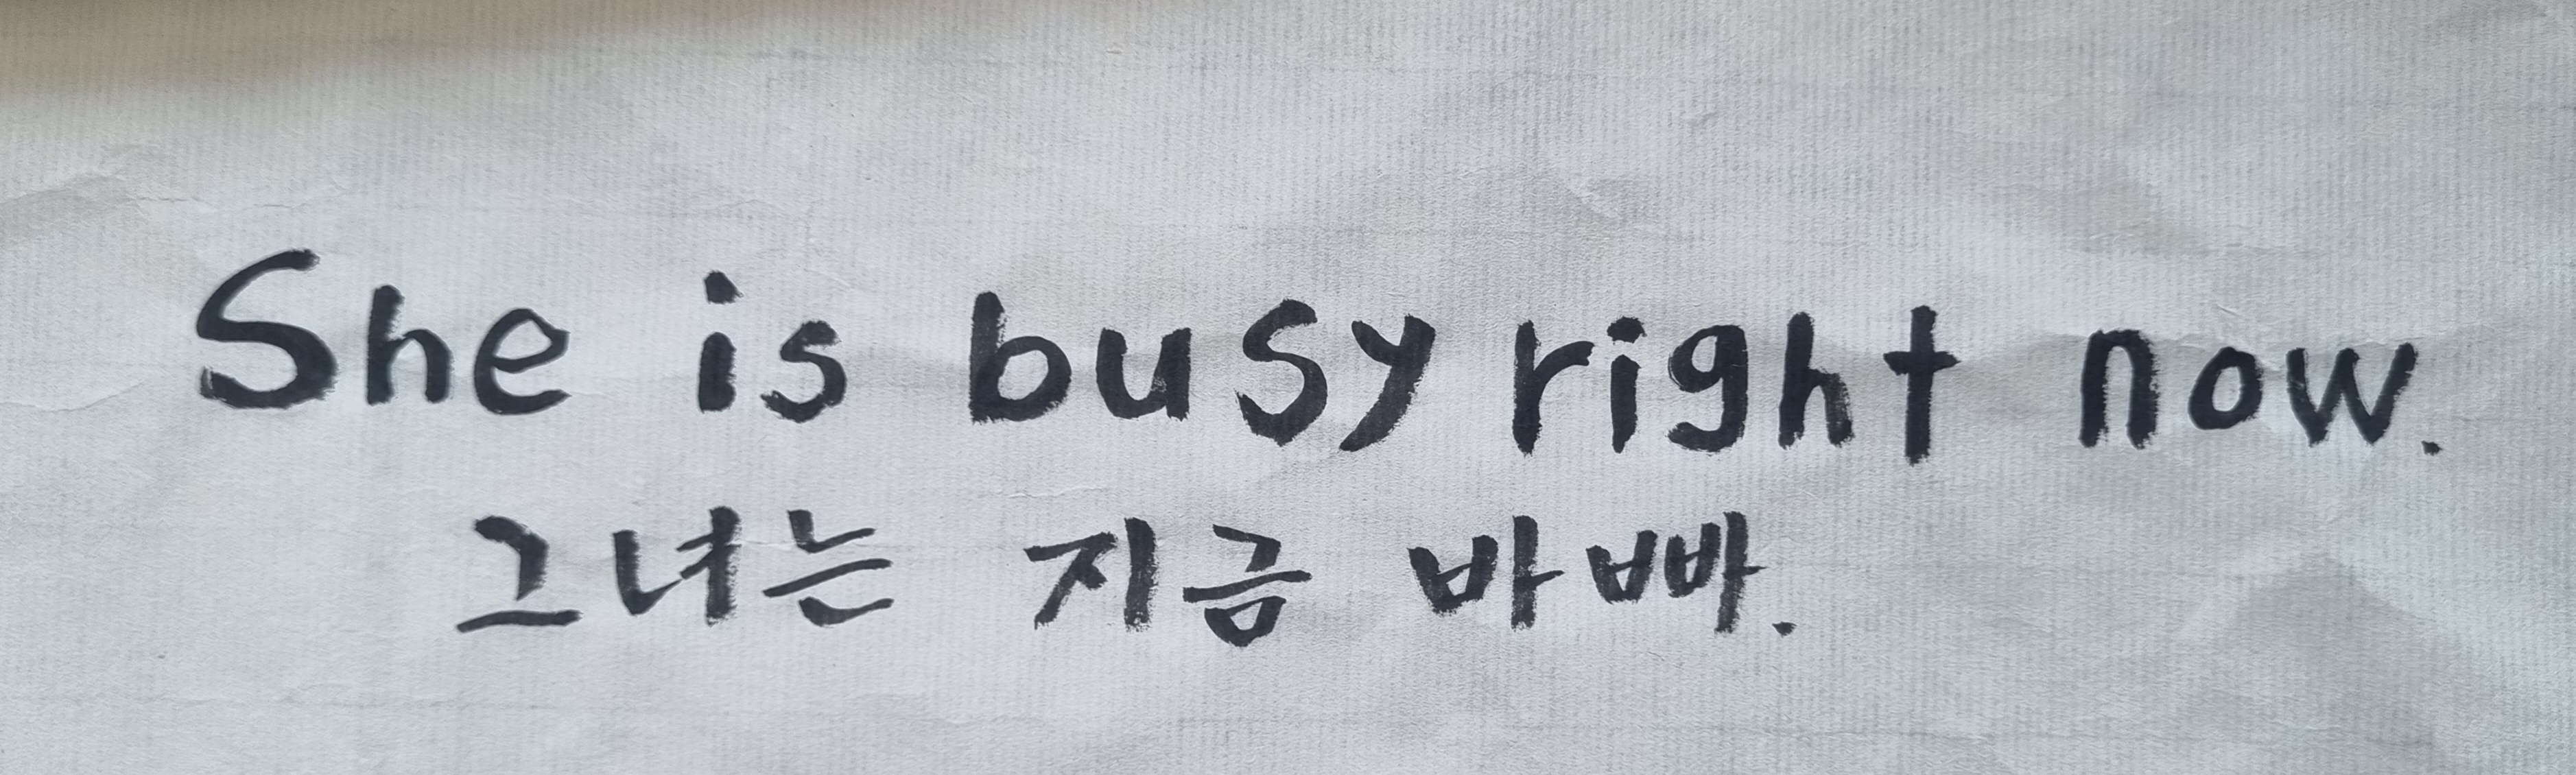 She is busy right now.
그녀는 지금 바빠.